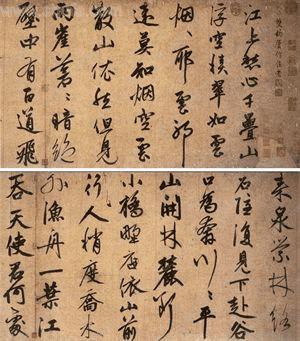 江上愁心千疊山
浮空積翠如雲
烟山耶雲耶
遠莫知烟空雲
散山依然但見
兩崖蒼〻暗絕
壑中有百道飛
來泉縈林絡
石隱復見下赴谷
口為奔川〻平
山開林麓斷
小橋野店依山前
行人稍度喬木
外漁舟一葉江
吞天使君何處